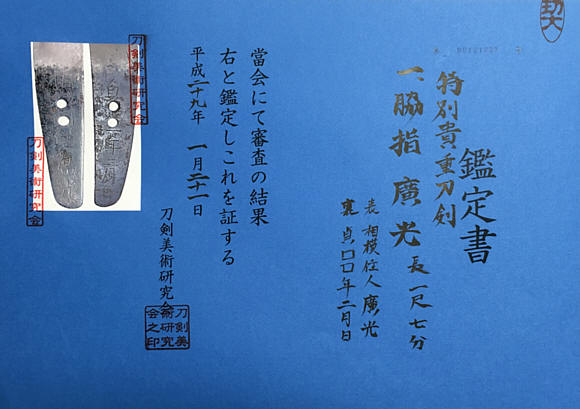 鑑定書
特別貴重刀剣
一、脇指 廣光 長一尺七分
表 相模住人廣光
裏 貞□□年二月日
當会にて審査の結果
右と鑑定しこれを証する
平成二十九年 一月二十一日
刀剣美術研究会
刀剣美術研究会之印
刀剣美術研究会
刀剣美術研究会